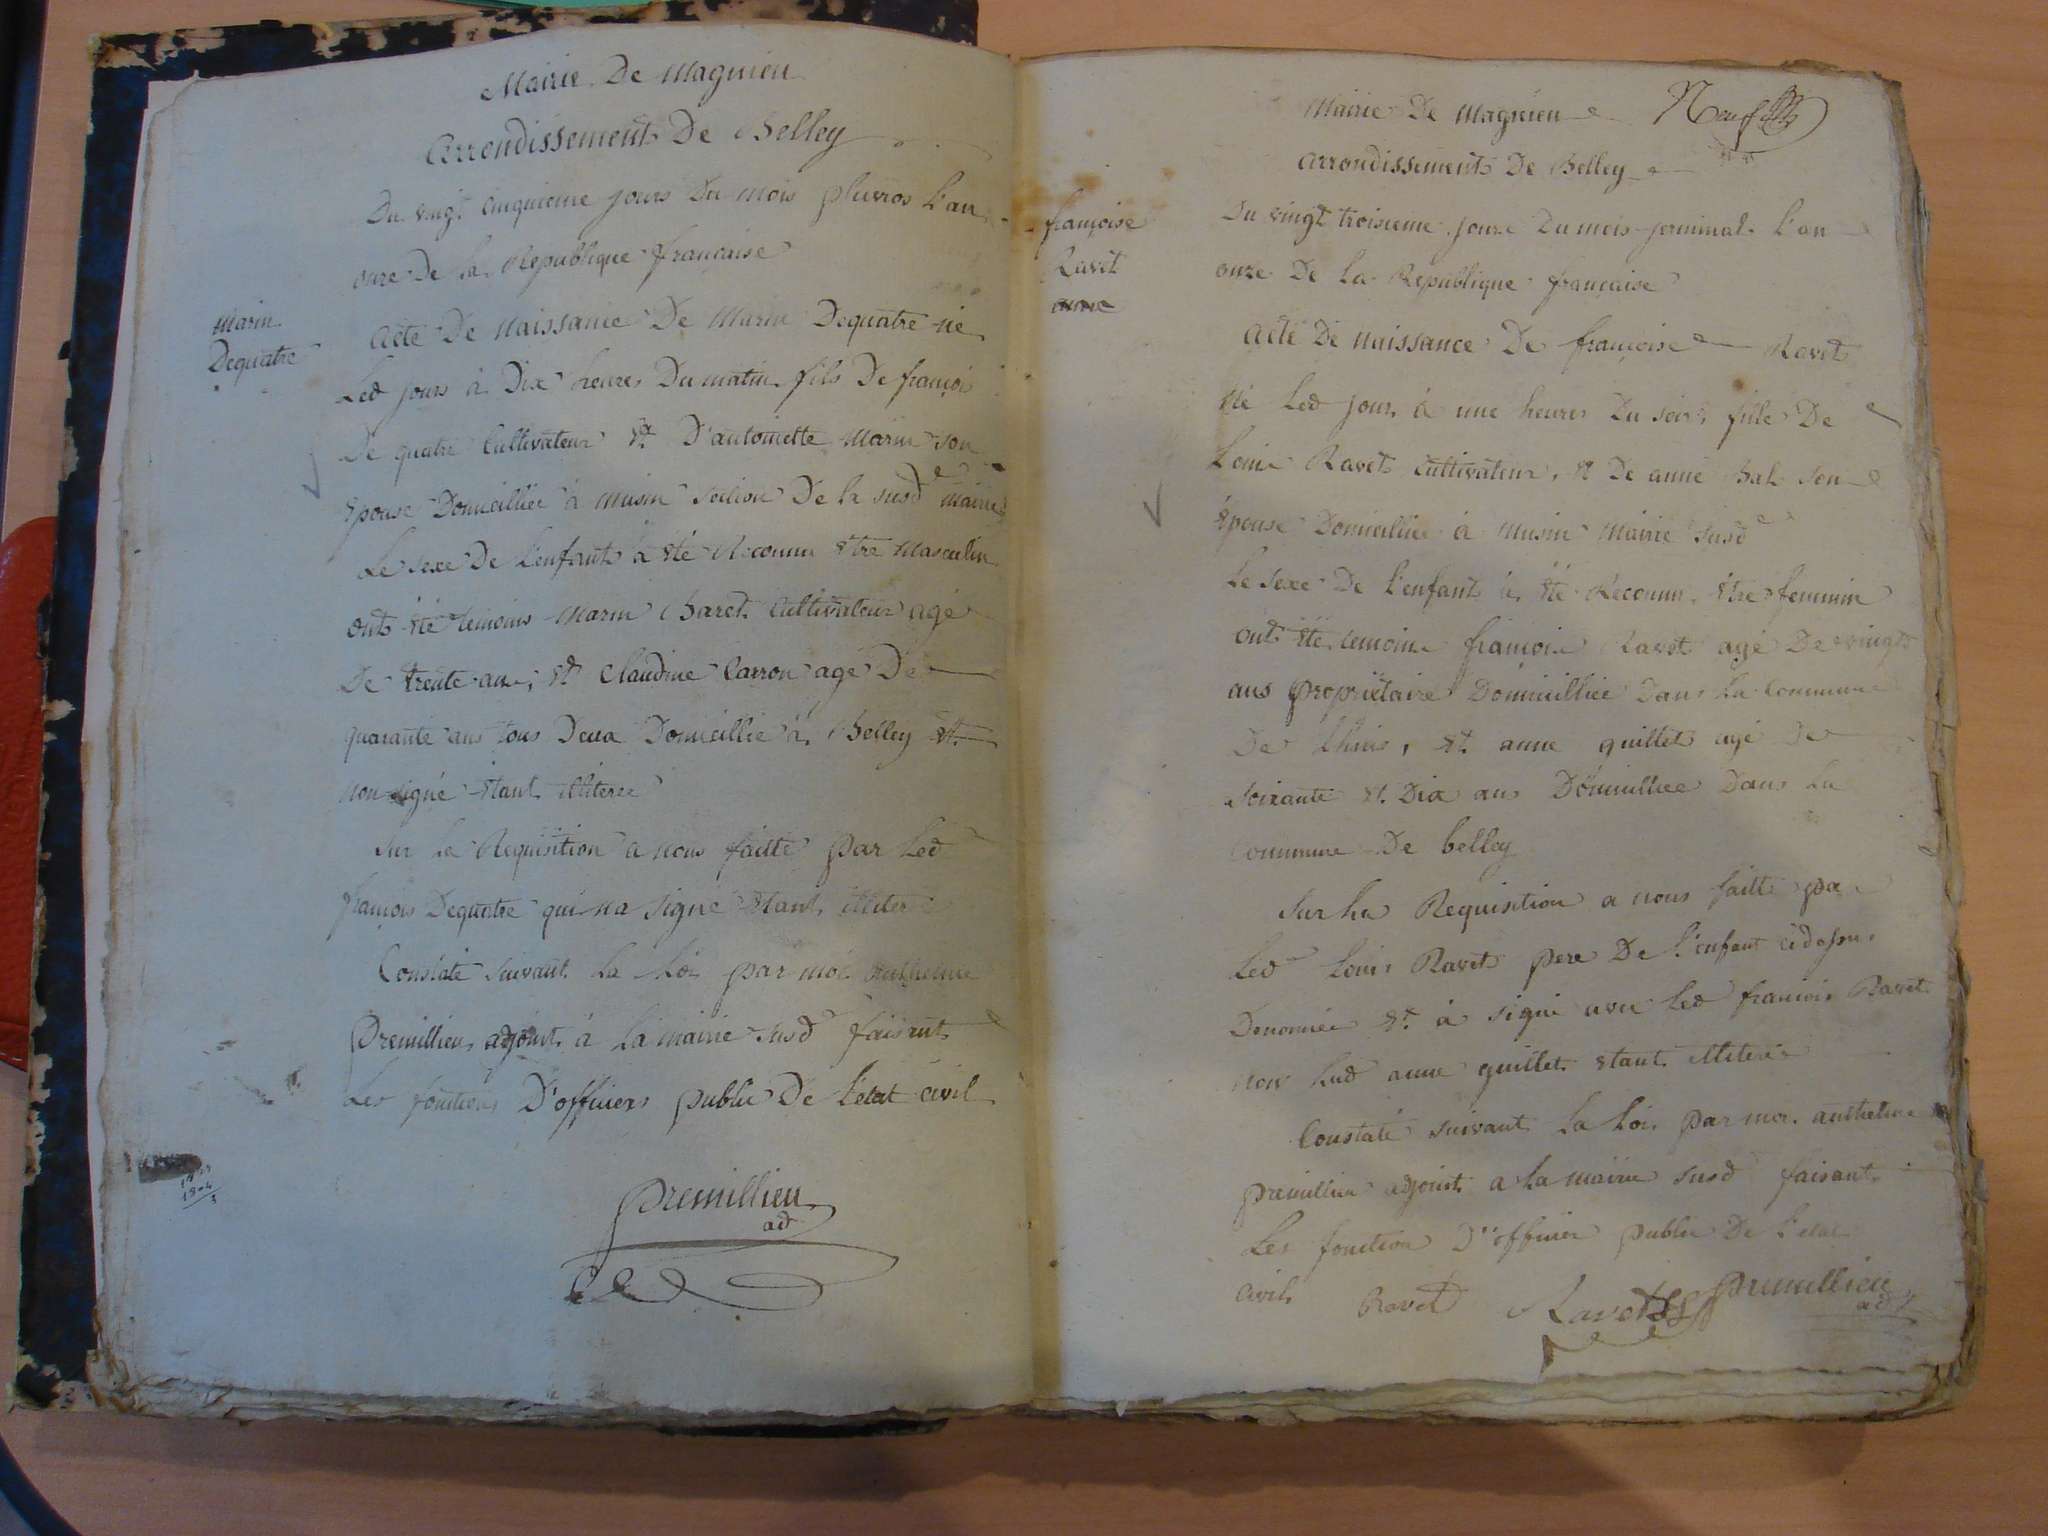 Mairie De Magnieu
arrondissement De Belley
Du vingt cinquieme jours Du mois pluvros L'an
onze De la Republique francaise
Marin
Dequatre
acte De Naissance De Marin Dequatre né
Led jours à Dix heures Du matin fils De françois
De quatre Cultivateur et D'antoinette Marin son
épouse Domicilliée à Musin section De la susd.e mairie
Le sexe De L'enfant à été Reconnu être Masculin
onts été témoins Marin Baret Cultivateur agé
De trente ans, et Claudine Carron agé De
quarante ans tous Deux Domicillié à Belley et
non signé étant illiteré
sur La Requisition a nous faitte par Led
françois Dequatre qui na signé étant illiteré
Constaté suivant La Loi par moi anthelme
Premillieu adjoint à La mairie susd.e faisant
Les fonctions D'officiers public De L'état civil
Premillieu
ad
Mairie De Magnieu
Neuf
arrondissements De Belley
françoise
Ravet
Du vingt troisieme jours Du mois jerminal L'an
onze De La Republique francaise
acte De Naissance De françoise Ravet
Né Led jour à une heures Du soir, fille De
Louis Ravet Cultivateur, et De anne Bal son
épouse Domicilliée à Musin Mairie susd.e
Le sexe De L'enfant à été Reconnu être feminin
onts été temoins françois Ravet agé De vingt
ans propriétaire Domicilliée Dans La Commune
De et anne guillet agé De
soixante et Dix ans Domicilliée Dans La
Commune De belley
sur La Requisition a nous faitte par
Led Louis Ravet pere De L'enfant
Denomée et à signé avec Led françois Ravet
non Lad anne guillet étant illiterée
Constaté suivant La Loi par moi anthelme
premillieu adjoint a La mairie susd faisant
Les fonction D'officier public De L'etat
Civil
Ravet Ravet Premillieu
ad